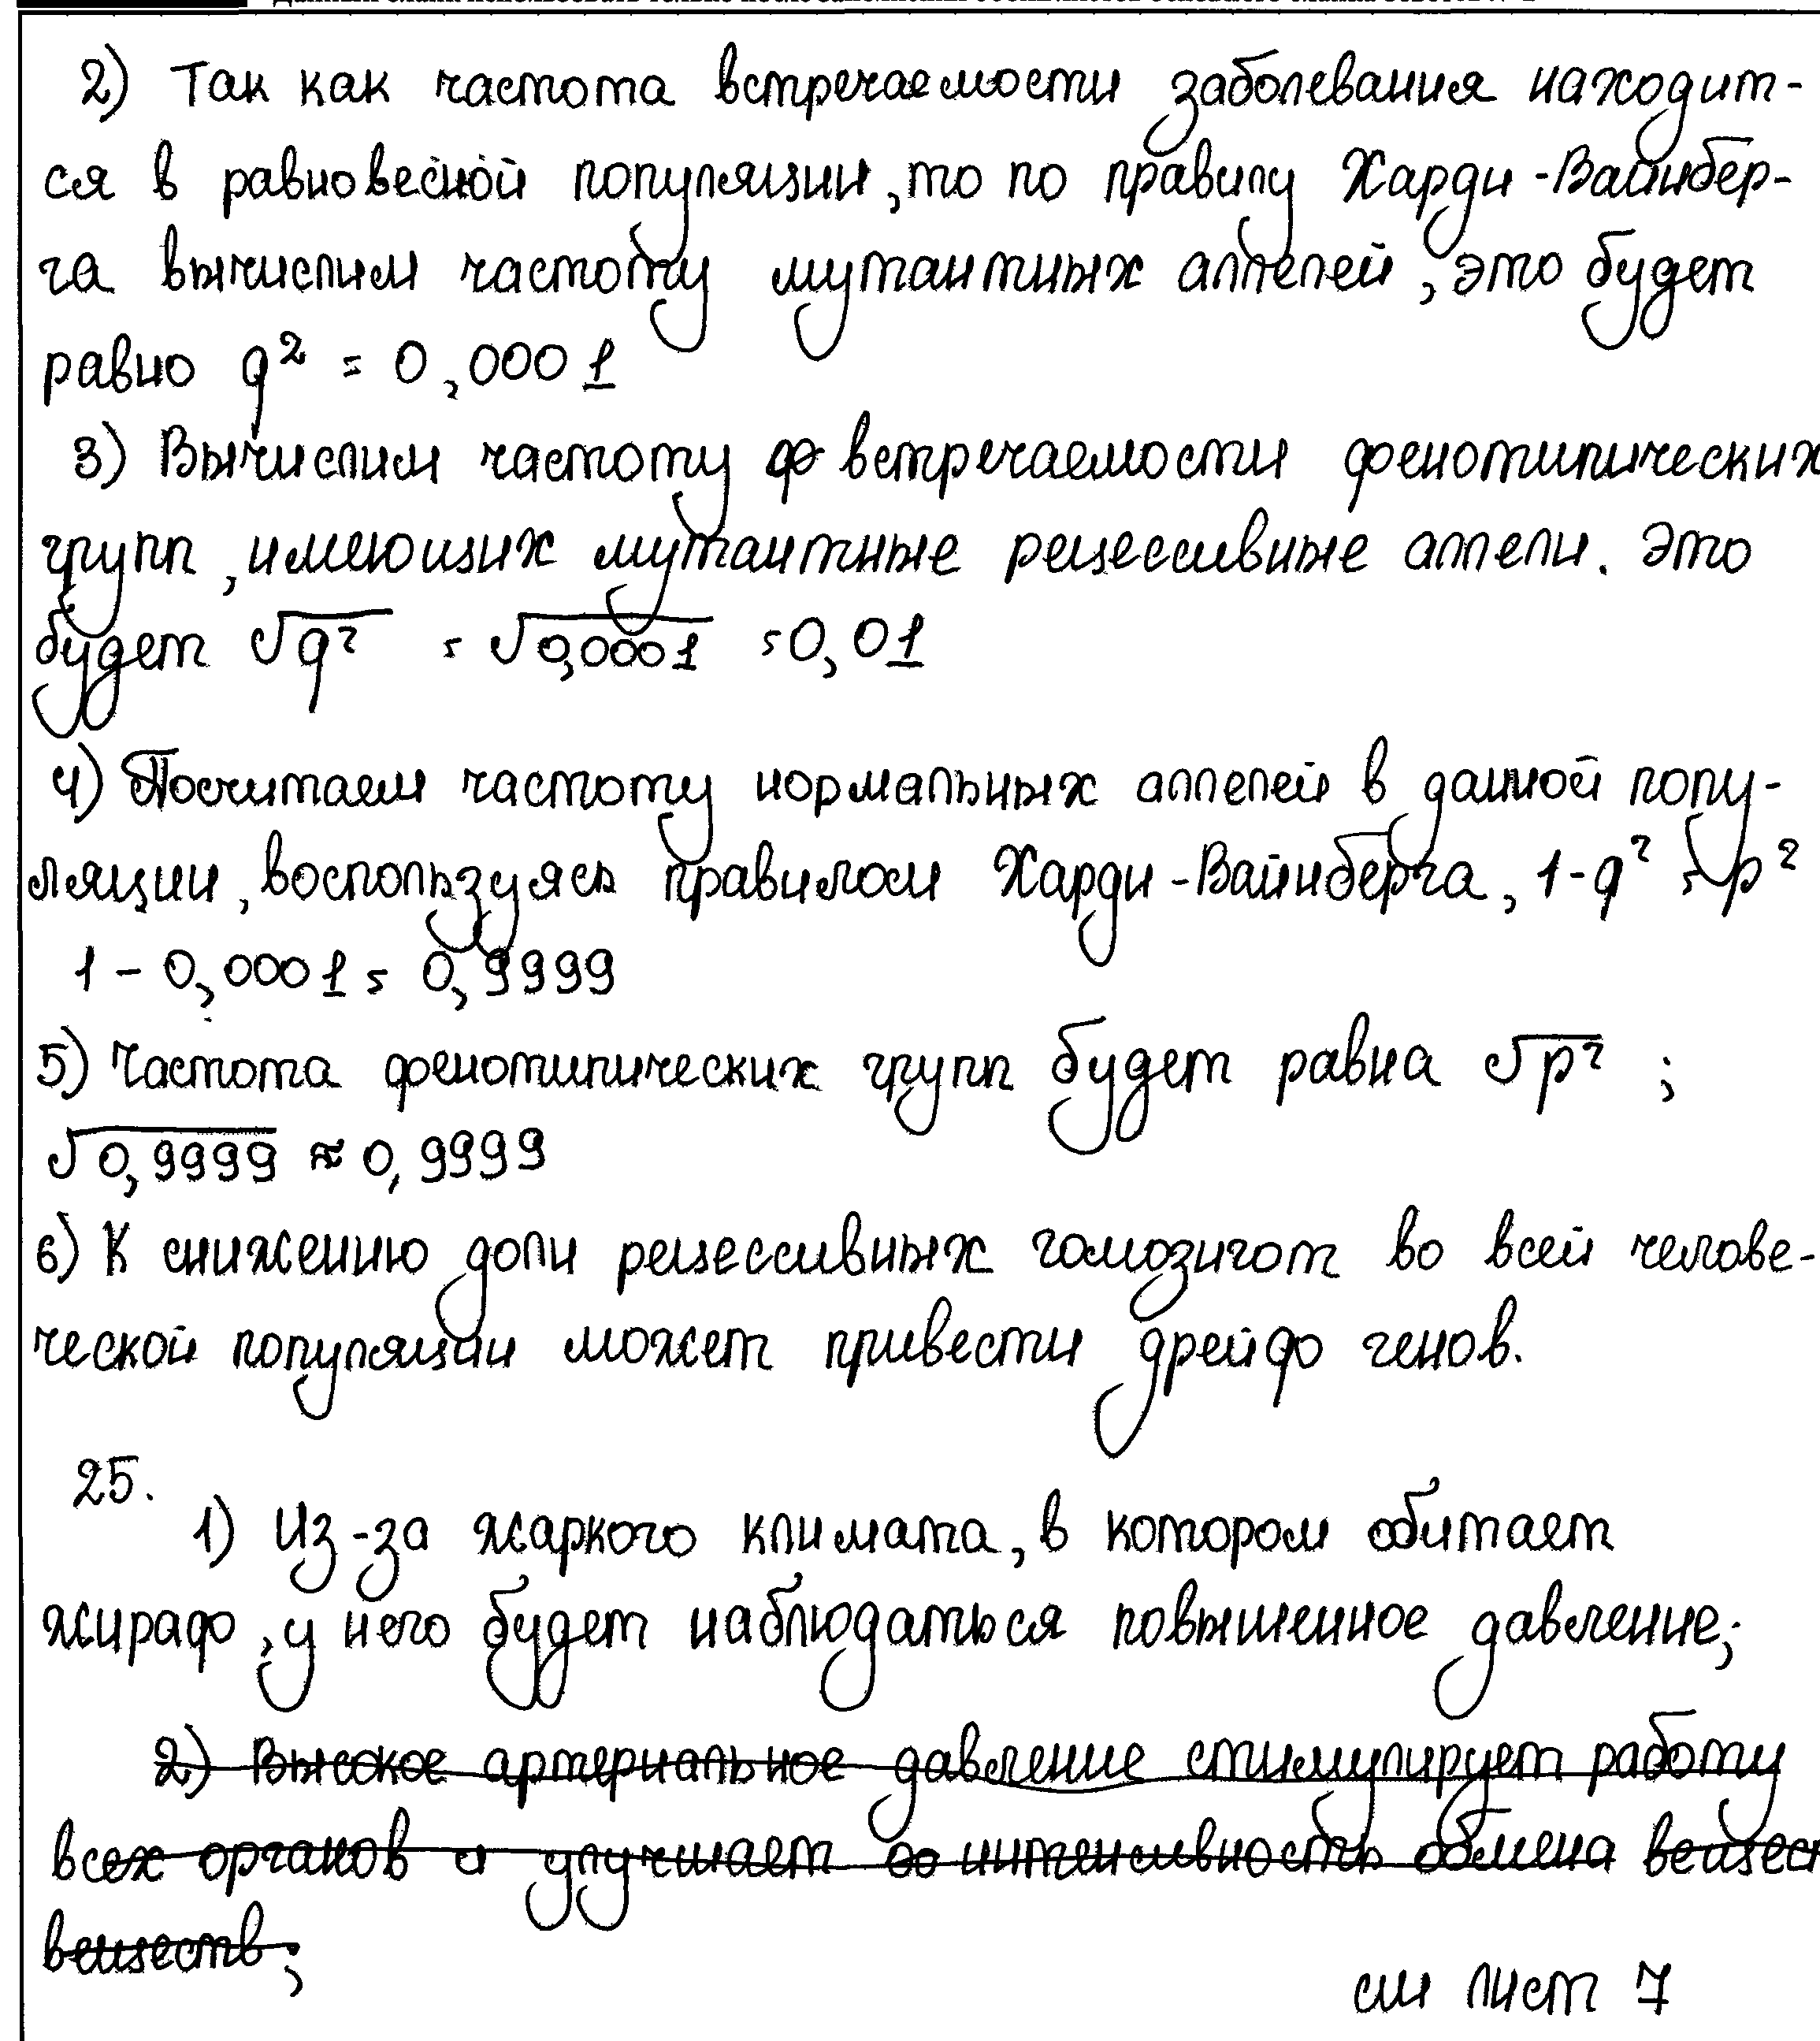 2) Так как частота встречаемости заболевания находит-
ся в равновесной популяции, то по правилу Харди-Вайнбер-
га вычислим частоту мутантных аллелей, это будет
равно q² = 0,0001
3) Вычислим частоту встречаемости фенотипических
групп, имеющих мутантные рецессивные аллели. Это
будет √q² = √0,0001 = 0,01
4) Посчитаем частоту нормальных аллелей в данной попу-
ляции, воспользуясь правилом Харди-Вайнберга, 1-q² = p²
1 - 0,0001 = 0,9999
5) Частота фенотипических групп будет равна √p² ;
√0,9999 ≈ 0,9999
6) К снижению доли рецессивных гомозигот во всей челове-
ческой популяции может привести дрейф генов.
25.
1) Из-за жаркого климата, в котором обитает
жираф, у него будет наблюдаться повышенное давление;
2) Высокое артериальное давление стимулирует работу
всех органов и улучшает интенсивность обмена вещест
веществ;
см лист 7